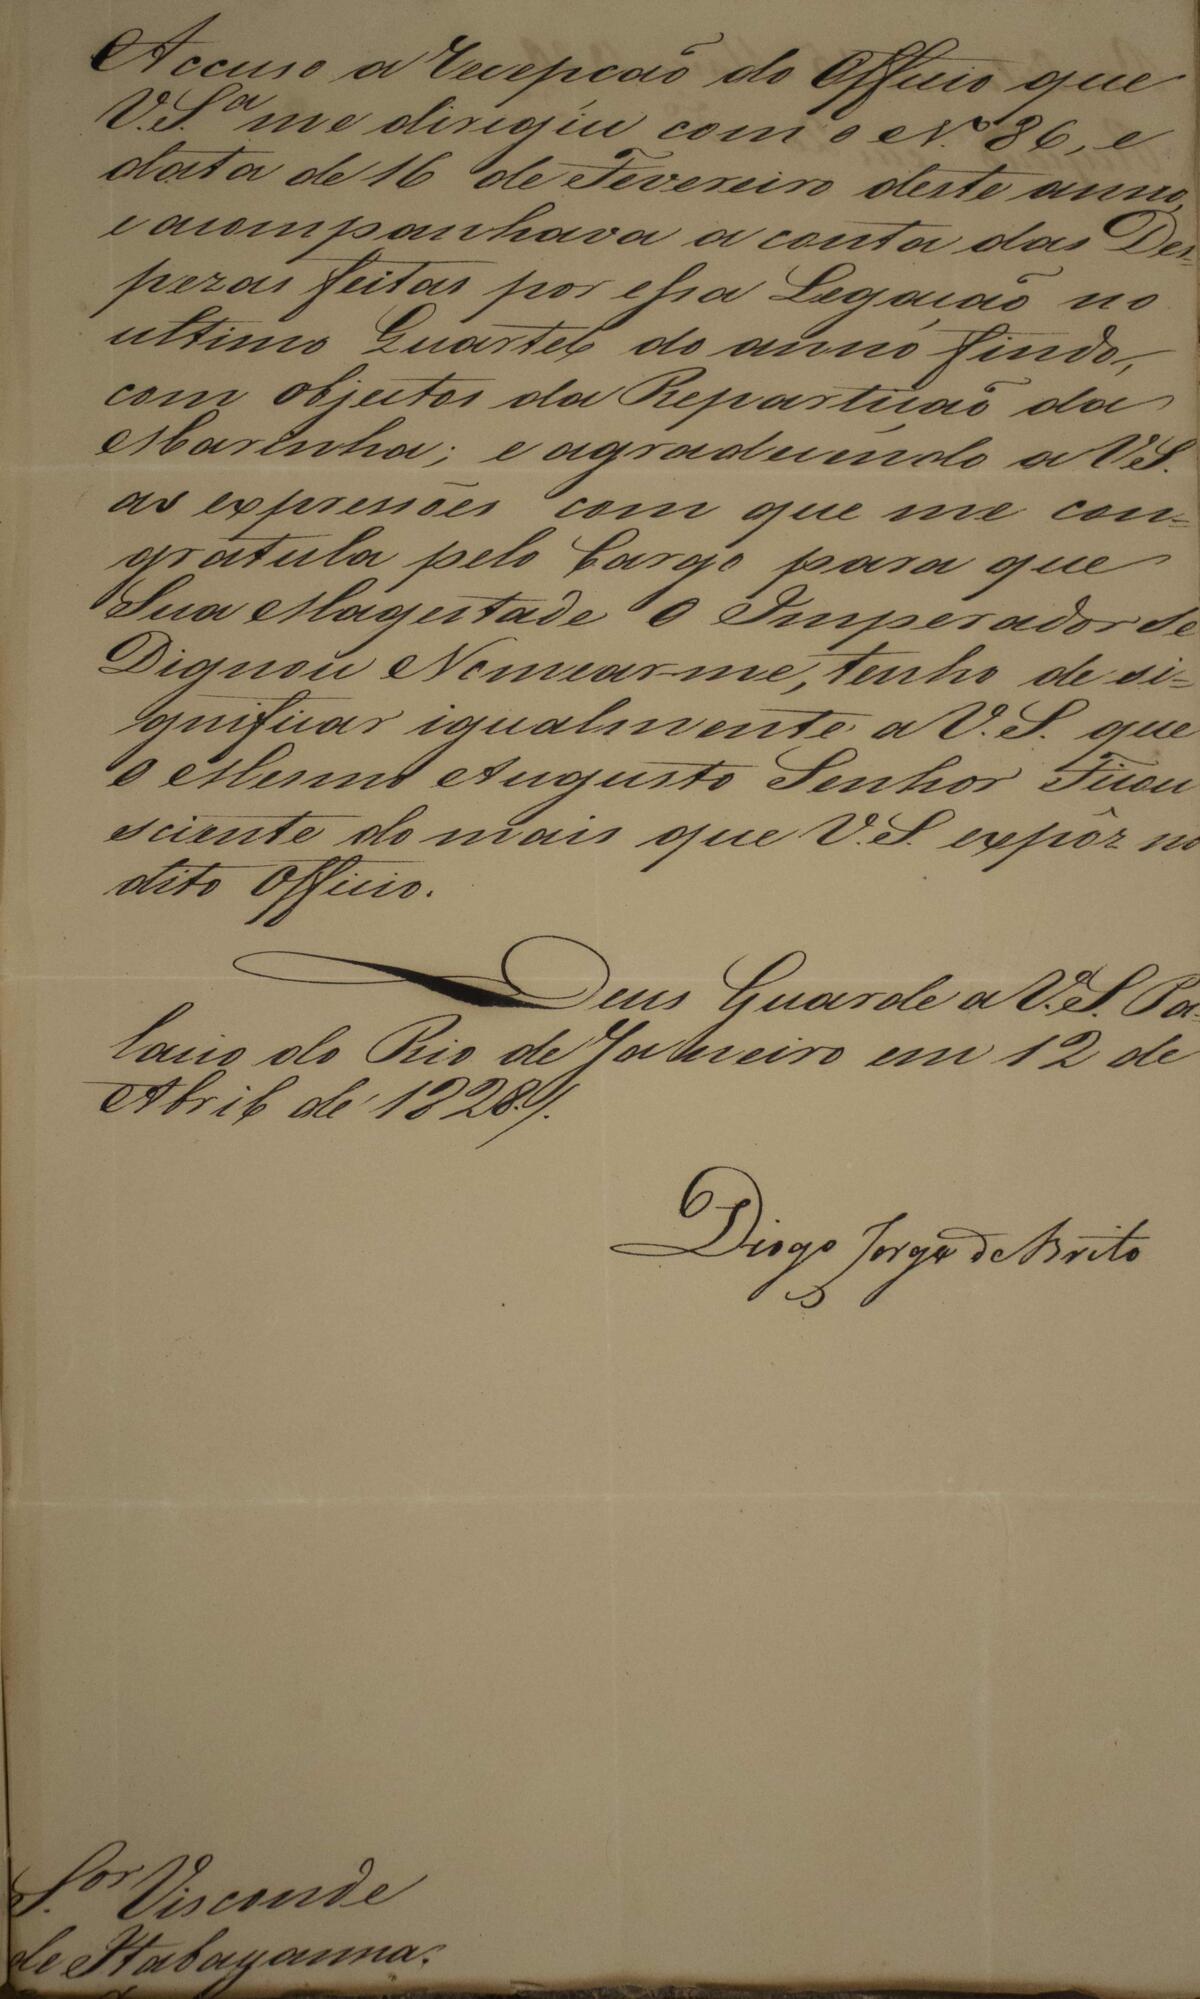 Accuso a recepção do Officio que
V.S.ª me dirigiu com o N.º 36, e
data de 16 de Fevereiro deste anno,
e acompanhava a conta das Des-
pezas feitas por essa Legação no
ultimo Quartel do anno findo,
com objectos da Repartição da
Marinha; e agradecendo a V.S.
as expressões com que me con-
gratula pelo Cargo para que
Sua Magestade o Imperador se
Dignou Nomear-me, tenho de si-
gnificar igualmente a V.S. que
o Mesmo Augusto Senhor Ficou
sciente do mais que V.S. expôz no
dito Officio.
Deus Guarde a V.S. Pa-
lacio do Rio de Janeiro em 12 de
Abril de 1828./.
Diogo Jorge de Brito
S.or Visconde
de Itabayanna.